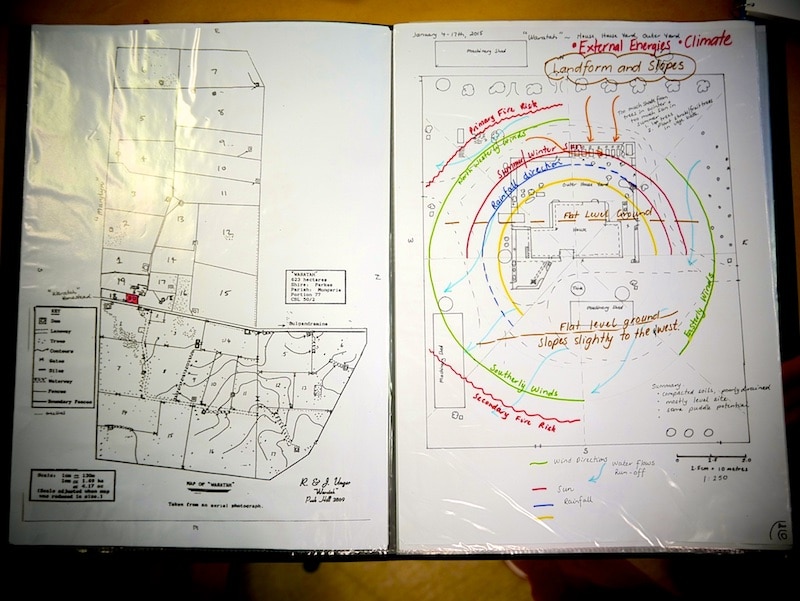 6
7
8
9
10
11
12
13
2
1
19
17
15
"WARATAH"
623 hectares
Shire: Parkes
Parish: Mungaria
Portion 77
CSL 50/2
Bulgandramine
KEY
Dam
Laneway
Trees
Contours
Gates
Silos
Waterway
Fences
Boundary Fences
Scale:
(Scale adjusted when map was reduced in size.)
MAP OF "WARATAH"
Taken from an aerial photograph.
R. & J. Unger
Waratah
Peak Hill 2869
January 4-17th, 2018
House, House Yard, Outer Yard
• External Energies • Climate
Landform and Slopes
Machinery Shed
Too much shade from
trees in winter +
too much sun in
summer
Primary Fire Risk
North Westerly Winds
Winter Sun
Rainfall direction
Outer House Yard
Flat Level Ground
House
E
Machinery Shed
Flat level ground
slopes slightly to the west.
Easterly Winds
Machinery Shed
Southerly Winds
Secondary Fire Risk
Summary
• compacted soils, poorly drained
• mostly level site
• some puddle potential
S
Wind Directions
Water Flows
Run-off
Sun
Rainfall
1:250